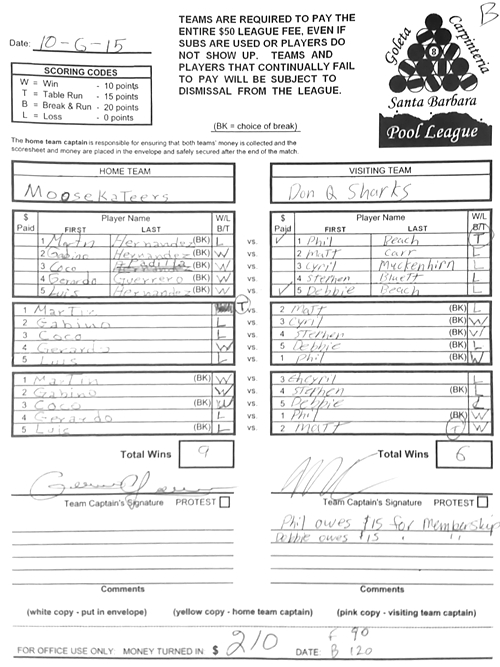 B
Date: 10-6-15
TEAMS ARE REQUIRED TO PAY THE
ENTIRE $50 LEAGUE FEE, EVEN IF
SUBS ARE USED OR PLAYERS DO
NOT SHOW UP. TEAMS AND
PLAYERS THAT CONTINUALLY FAIL
TO PAY WILL BE SUBJECT TO
DISMISSAL FROM THE LEAGUE.
SCORING CODES
W = Win - 10 points
T = Table Run - 15 points
B = Break & Run - 20 points
L = Loss - 0 points
Goleta
Carpinteria
8
Santa Barbara
Pool League
(BK = choice of break)
The home team captain is responsible for ensuring that both teams' money is collected and the
scoresheet and money are placed in the envelope and safely secured after the end of the match.
HOME TEAM VISITING TEAM
Moosekateers Don Q Sharks
$ Paid Player Name FIRST LAST W/L B/T $ Paid Player Name FIRST LAST W/L B/T
1 Martin Hernandez (BK) L vs. ✓ 1 Phil Beach T
2 Gabino Hernandez (BK) W vs. 2 Matt Carr L
3 Coco Padilla (BK) W vs. 3 Cyril Muckenhirn L
4 Gerardo Guerrero (BK) W vs. 4 Stephen Bluett L
5 Luis Hernandez (BK) W vs. ✓ 5 Debbie Beach L
1 Martin T vs. 2 Matt (BK) L
2 Gabino L vs. 3 Cyril (BK) W
3 Coco L vs. 4 Stephen (BK) W
4 Gerardo W vs. 5 Debbie (BK) L
5 Luis L vs. 1 Phil (BK) W
1 Martin (BK) W vs. 3 Cyril L
2 Gabino (BK) W vs. 4 Stephen L
3 Coco (BK) W vs. 5 Debbie L
4 Gerardo L vs. 1 Phil (BK) W
5 Luis (BK) L vs. 2 Matt T W
Total Wins 9 Total Wins 6
Team Captain's Signature PROTEST Team Captain's Signature PROTEST
Phil owes $15 for membership
Debbie owes $15 " "
Comments Comments
(white copy - put in envelope) (yellow copy - home team captain) (pink copy - visiting team captain)
FOR OFFICE USE ONLY: MONEY TURNED IN $ 210 DATE: F 90
B 120